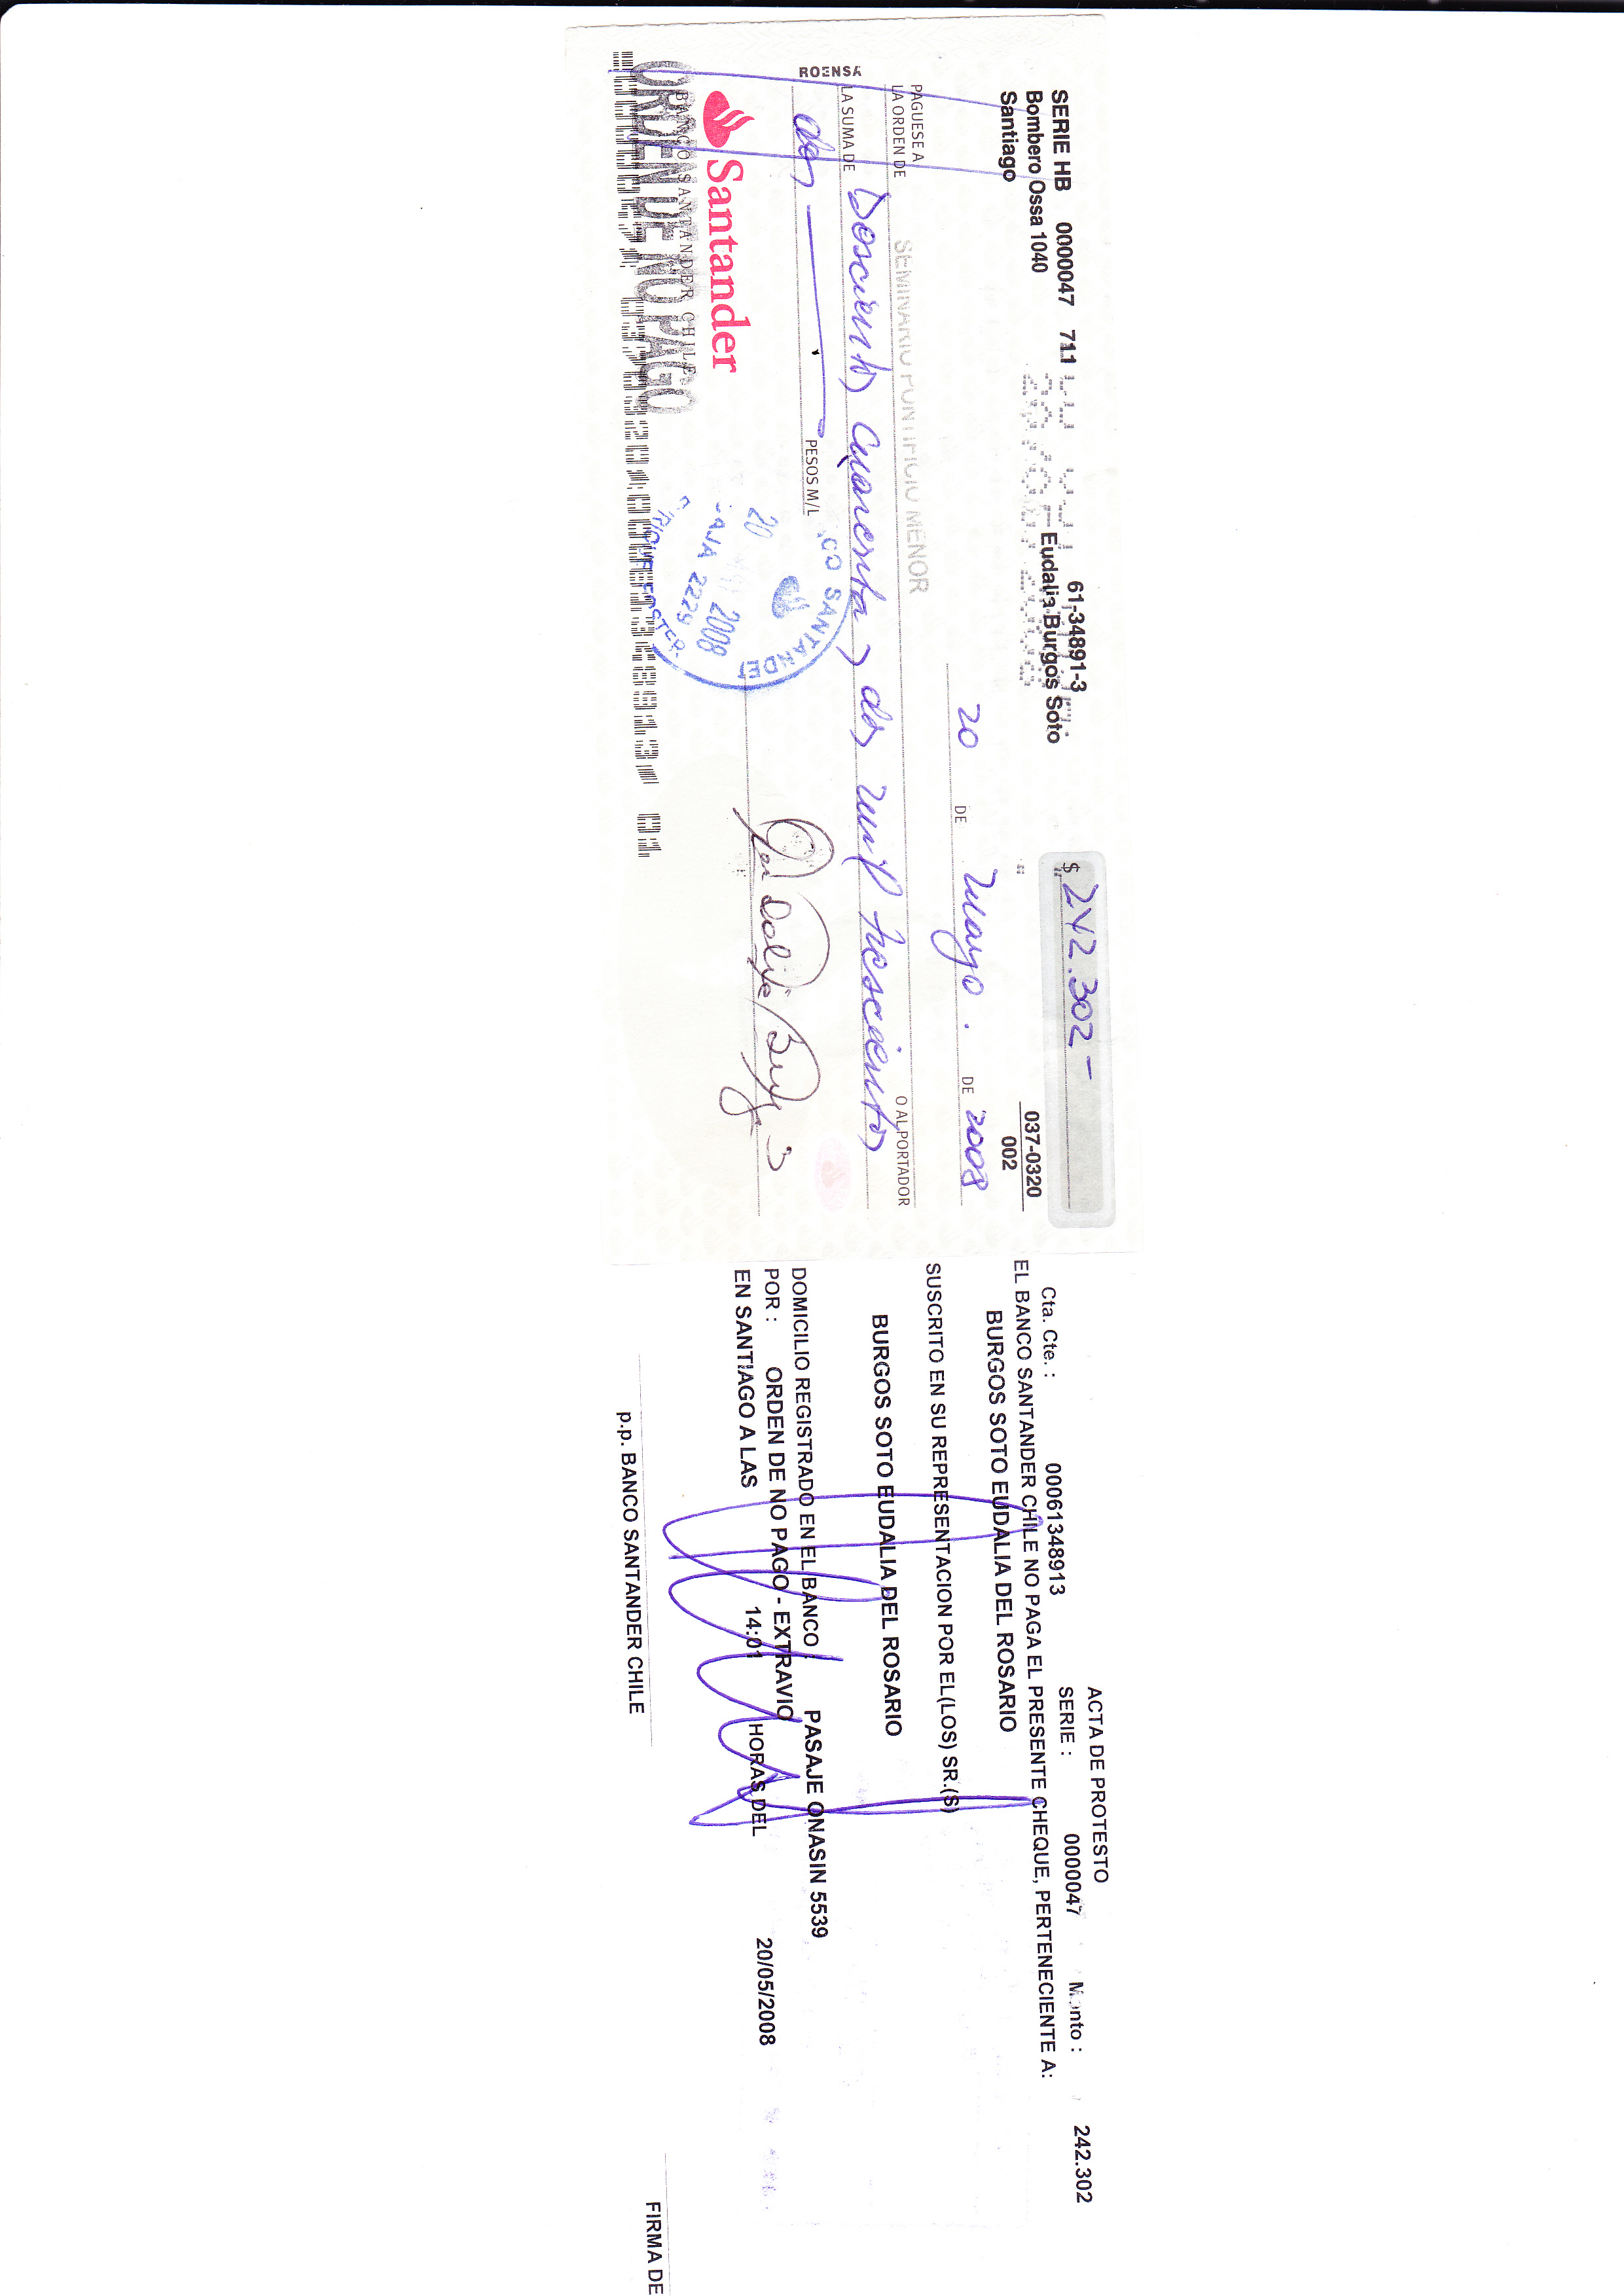 SERIE HB 0000047 711 61-34891-3
Bombero Ossa 1040 Eudalia Burgos Soto
Santiago
$ 242.302 -
037-0320
002
20 DE Mayo. DE 2008
PAGUESE A
LA ORDEN DE SEMINARIO PONTIFICIO MENOR O AL PORTADOR
LA SUMA DE Doscientos Cuarenta y dos mil trescientos
dos PESOS M/L
ROENSA
Santander
BANCO SANTANDER CHILE
ORDEN DE NO PAGO
CO SANTANDE
20 2008
AJA 2229
ACTA DE PROTESTO
Cta. Cte. : 00061348913 SERIE : 0000047 Monto : 242.302
EL BANCO SANTANDER CHILE NO PAGA EL PRESENTE CHEQUE, PERTENECIENTE A:
BURGOS SOTO EUDALIA DEL ROSARIO
SUSCRITO EN SU REPRESENTACION POR EL(LOS) SR.(S)
BURGOS SOTO EUDALIA DEL ROSARIO
DOMICILIO REGISTRADO EN EL BANCO : PASAJE ONASIN 5539
POR : ORDEN DE NO PAGO - EXTRAVIO
EN SANTIAGO A LAS 14:01 HORAS DEL 20/05/2008
p.p. BANCO SANTANDER CHILE
FIRMA DE